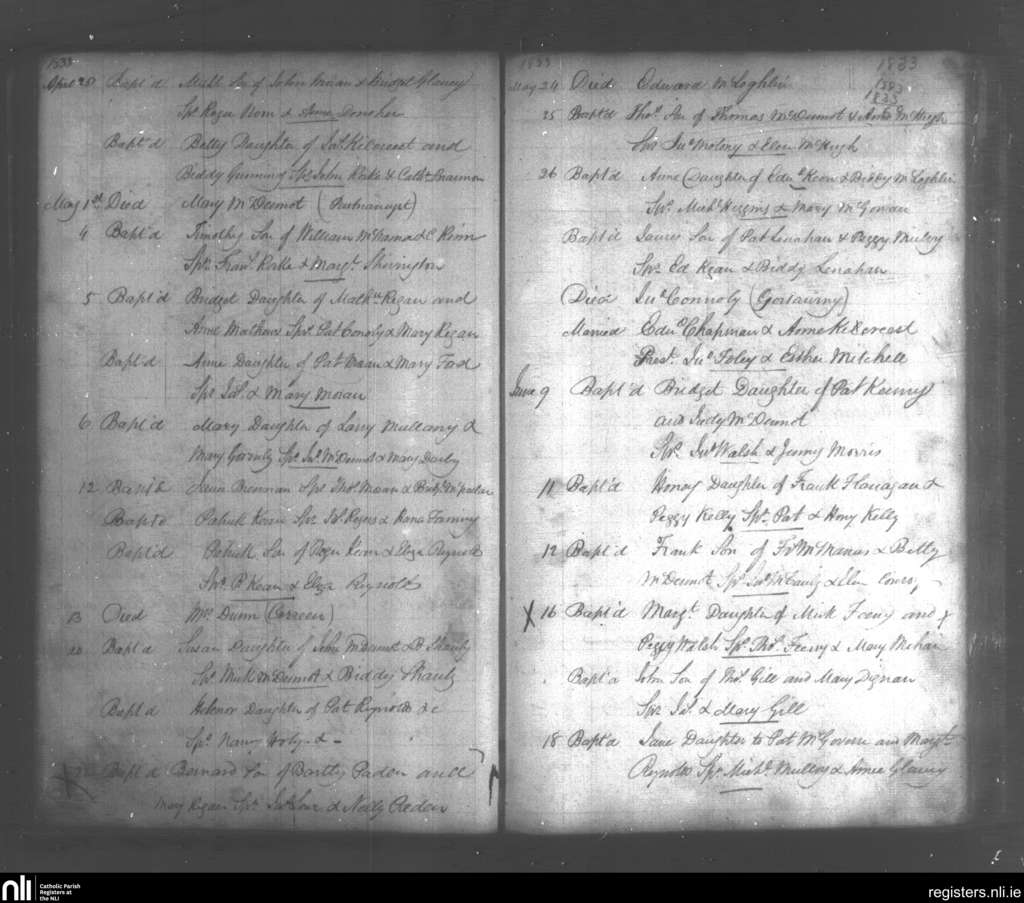 1833
April 28 Bapt'd Math Son of John Moran & Bridget Glancy
Sps Roger Norn & Anne Donoher
Bapt'd Betty Daughter of Jas. Kilcreast and
Biddy Gunning Sps John Rorke & Cath. Brannon
May 1st Died Mary McDermot
4 Bapt'd Timothy Son of William McNama & C. Keirn
Sps. Fran. Rorke & Margt. Sherington
5 Bapt'd Bridget Daughter of Mathw Regan and
Anne Mathews Sps. Pat Conoly & Mary Regan
Bapt'd Anne Daughter of Pat Moran & Mary Ford
Sps Jas. & Mary Moran
6 Bapt'd Mary Daughter of Larry Mullany &
Mary Sps. Jas. McDermot & Mary Darby
12 Bapt'd Brennan Sps Thos. Moran & Bidy
Bapt'd Patrick Sps. Rogers & Hana Fanning
Bapt'd Patrick Son of Roger Keon & Eliza Reynolds
Sps. P Kean & Eliza Reynolds
13 Died Mrs. Dunn (Correen)
20 Bapt'd Susan Daughter of John McDermot & B Shanly
Sps. Mick McDermot & Biddy Shanly
Bapt'd Helenor Daughter of Pat Reynolds &c
Sps. Nancy & -
Bapt'd Bernard Son of Bartly Paden and
Mary Regan Sps. & Neddy Peden
1833
1833
1833
1833
May 24 Died Edward McLoghlin
25 Bapt'd Thos. Son of Thomas McDermot & Anne McHugh
Sps Jno. Molony & Elen McHugh
26 Bapt'd Anne Daughter of Edwd. Keon & Biddy McLoghlin
Sps. Michl. Higgins & Mary McGowan
Bapt'd James Son of Pat Lenahan & Peggy Mulvy
Sps Ed Kean & Biddy Lenahan
Died Jno. Connoly
Married Edwd. Chapman & Anne Kilcreast
Prest. Jno. Foley & Esther Mitchell
June 9 Bapt'd Bridget Daughter of Pat Keeny
and Judy McDermot
Sps. Jno. Walsh & Jenny Morris
11 Bapt'd Honor Daughter of Frank Flanagan &
Peggy Kelly Sps. Pat & Hony Kelly
12 Bapt'd Frank Son of McManus & Betty
McDermot Sps. & Elen
X 16 Bapt'd Margt. Daughter of Mick Feeny and X
Peggy Walsh Sps. Thos. Feeny & Mary Mehan
Bapt'd John Son of Thos. Gill and Mary Dignan
Sps Jas. & Mary Gill
18 Bapt'd Jane Daughter to Pat McGovern and Margt.
Reynolds Sps Michl. Mulloy & Anne Glancy
nli
Catholic Parish
Registers at
the NLI
registers.nli.ie